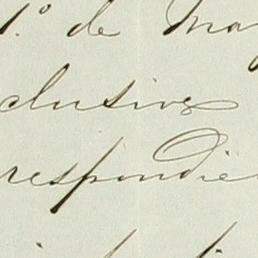 1.º de Ma
clusive
respondie